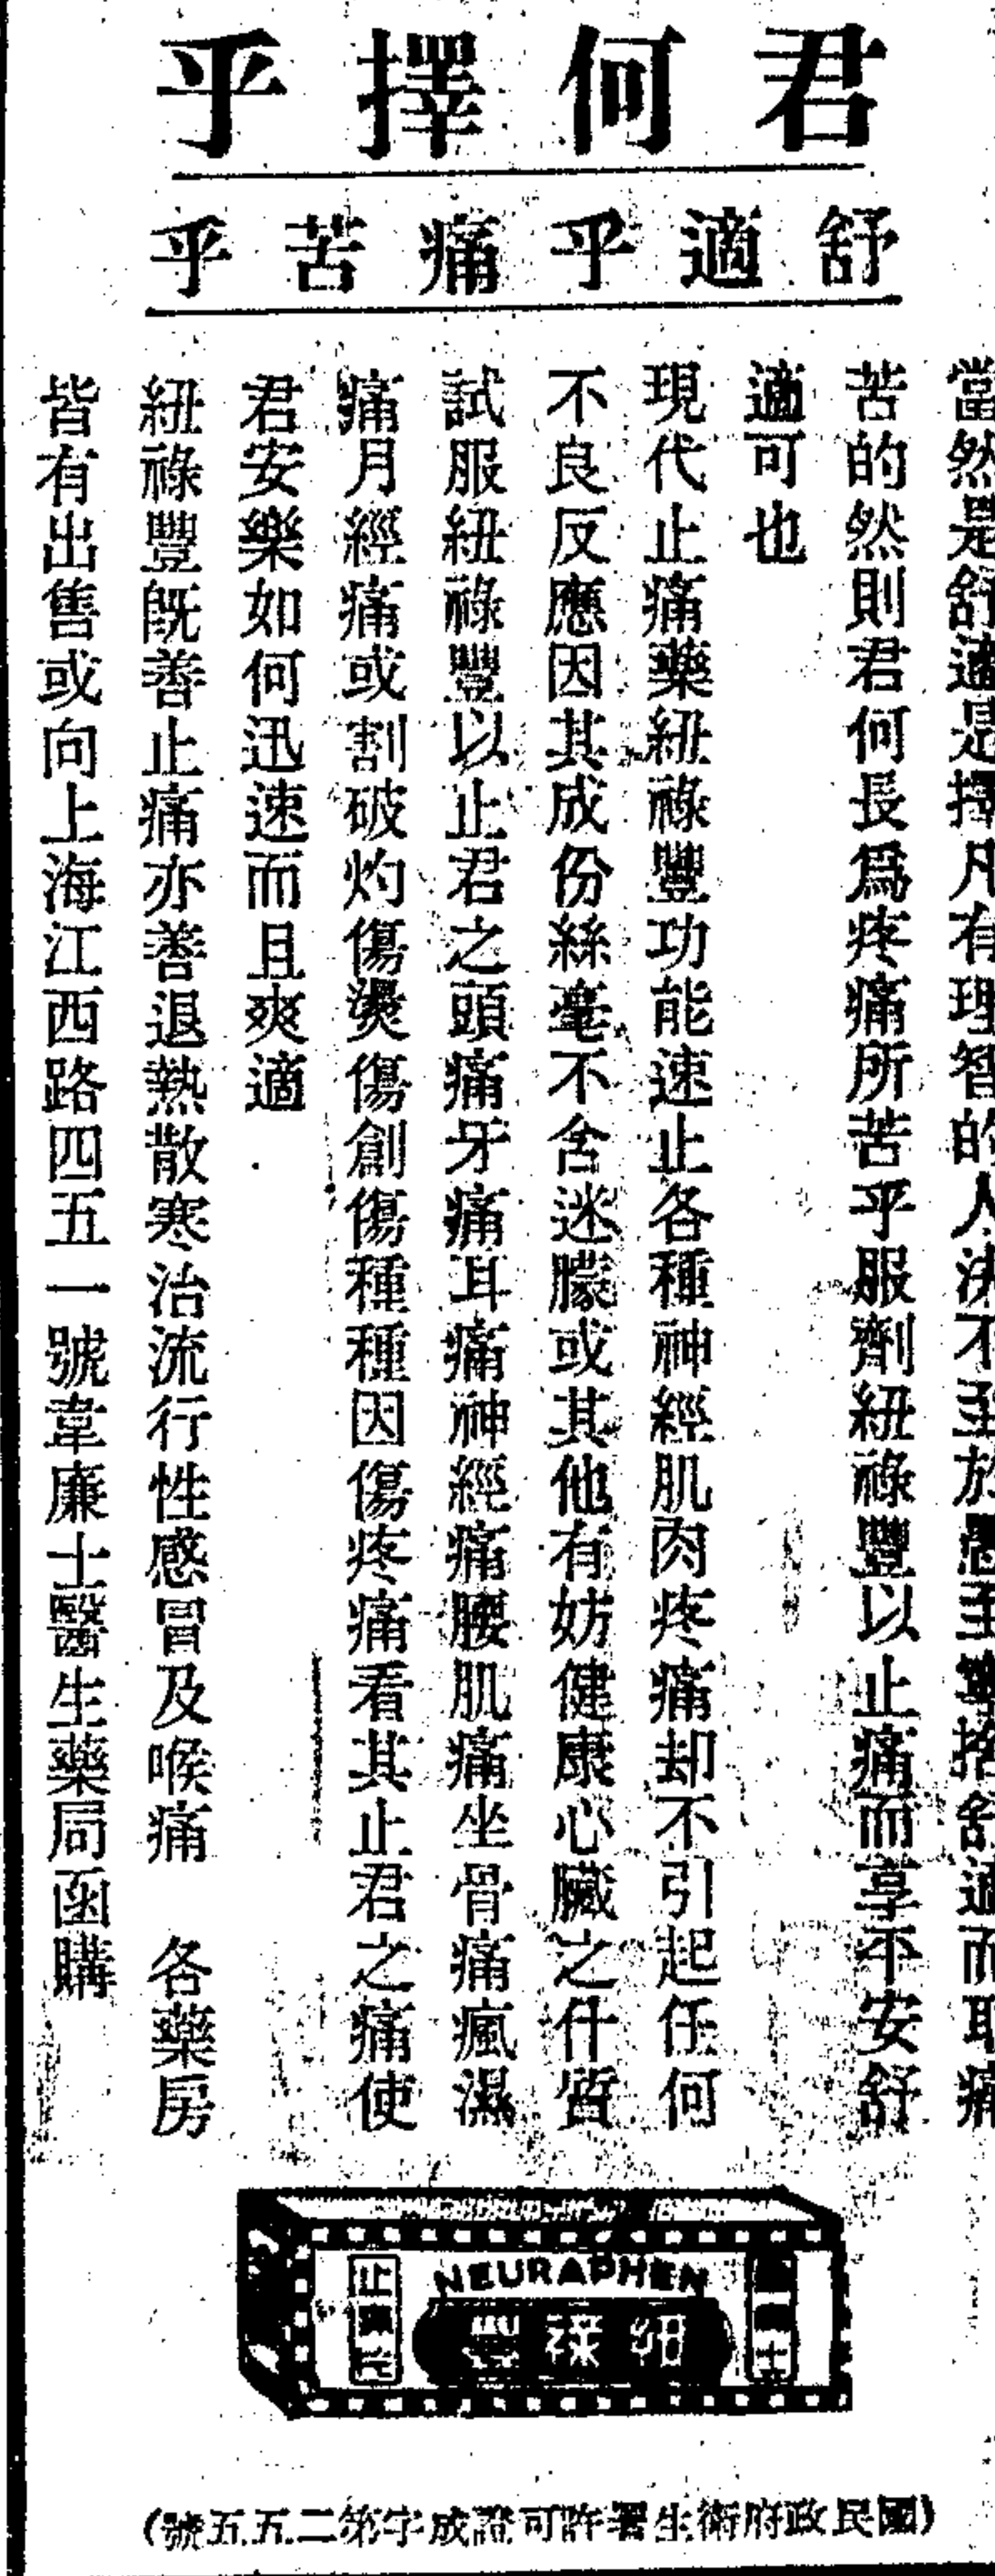 君何擇乎
舒適乎痛苦乎
當然是舒適是擇凡有理智的人決不至於愚至寧捨舒適而取痛
苦的然則君何長爲疼痛所苦乎服劑紐祿豐以止痛而享平安舒
適可也
現代止痛藥紐祿豐功能速止各種神經肌肉疼痛却不引起任何
不良反應因其成份絲毫不含迷朦或其他有妨健康心臟之什質
試服紐祿豐以止君之頭痛牙痛耳痛神經痛腰肌痛坐骨痛瘋濕
痛月經痛或割破灼傷燙傷創傷種種因傷疼痛看其止君之痛使
君安樂如何迅速而且爽適
紐祿豐既善止痛亦善退熱散寒治流行性感冒及喉痛 各藥房
皆有出售或向上海江西路四五一號韋廉士醫生藥局函購
NEURAPHEN
紐祿豐
止痛片
(國民政府衛生署許可證成字第二五五號)